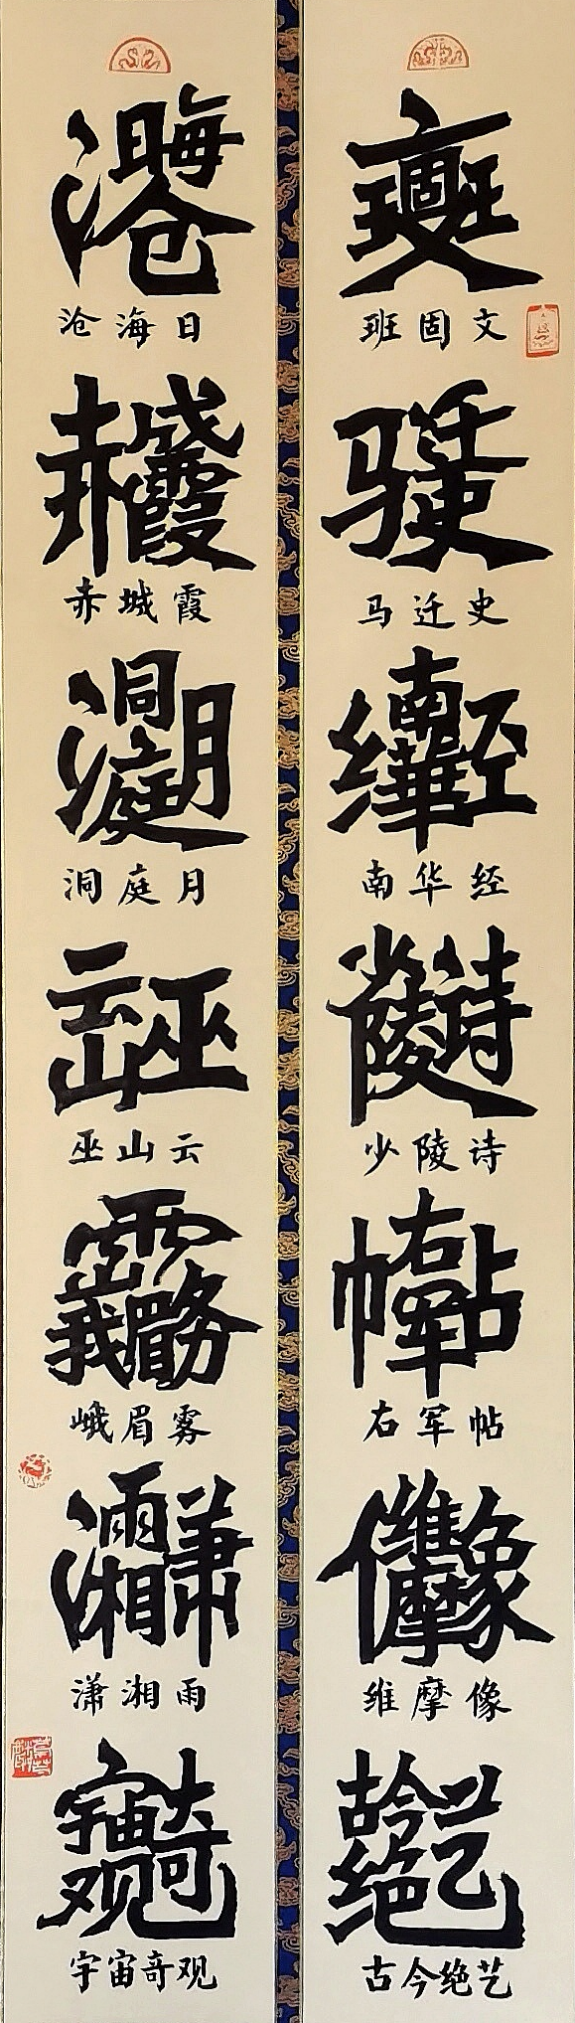 班固文
马迁史
南华经
少陵诗
右军帖
维摩像
古今绝艺
沧海日
赤城霞
洞庭月
巫山云
峨眉雾
潇湘雨
宇宙奇观